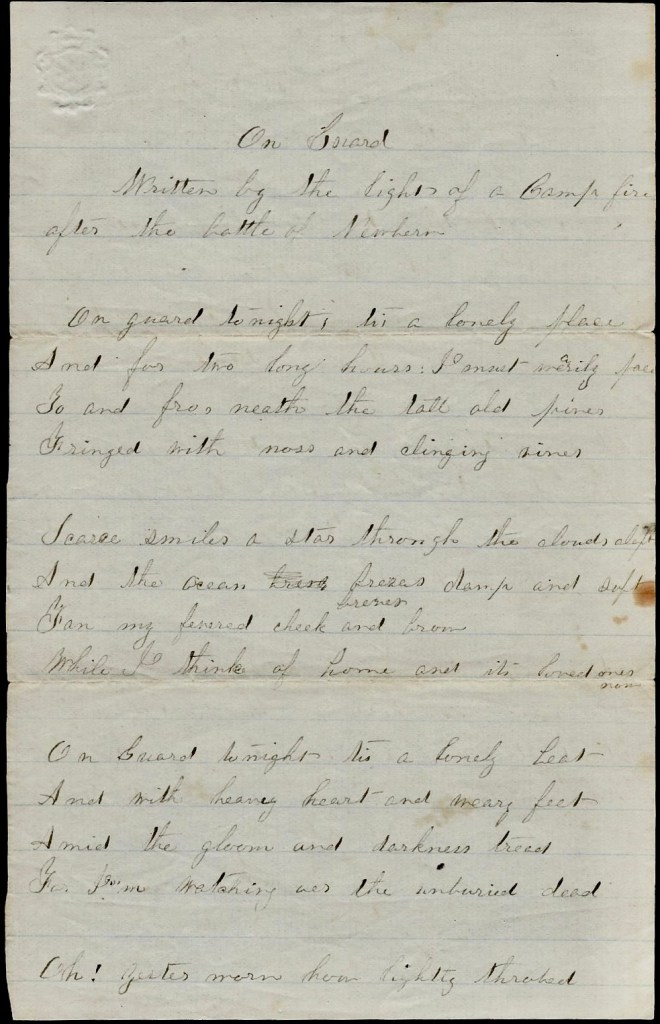 On Guard
Written by the light of a Camp fire
after the battle of Newbern
On guard tonight; tis a lonely place
And for two long hours: I must warily pace
To and fro; neath the tall old pines
Fringed with moss and clinging vines
Scarce smiles a star through the clouds aloft
And the ocean frezas damp and soft
brezes
Fan my fevered cheek and brow
While I think of home and its loved ones
now
On Guard tonight tis a lonely beat
And with heavy heart and weary feet
Amid the gloom and darkness tread
For I'm watching oer the unburied dead
Oh! yester morn how lightly throbed